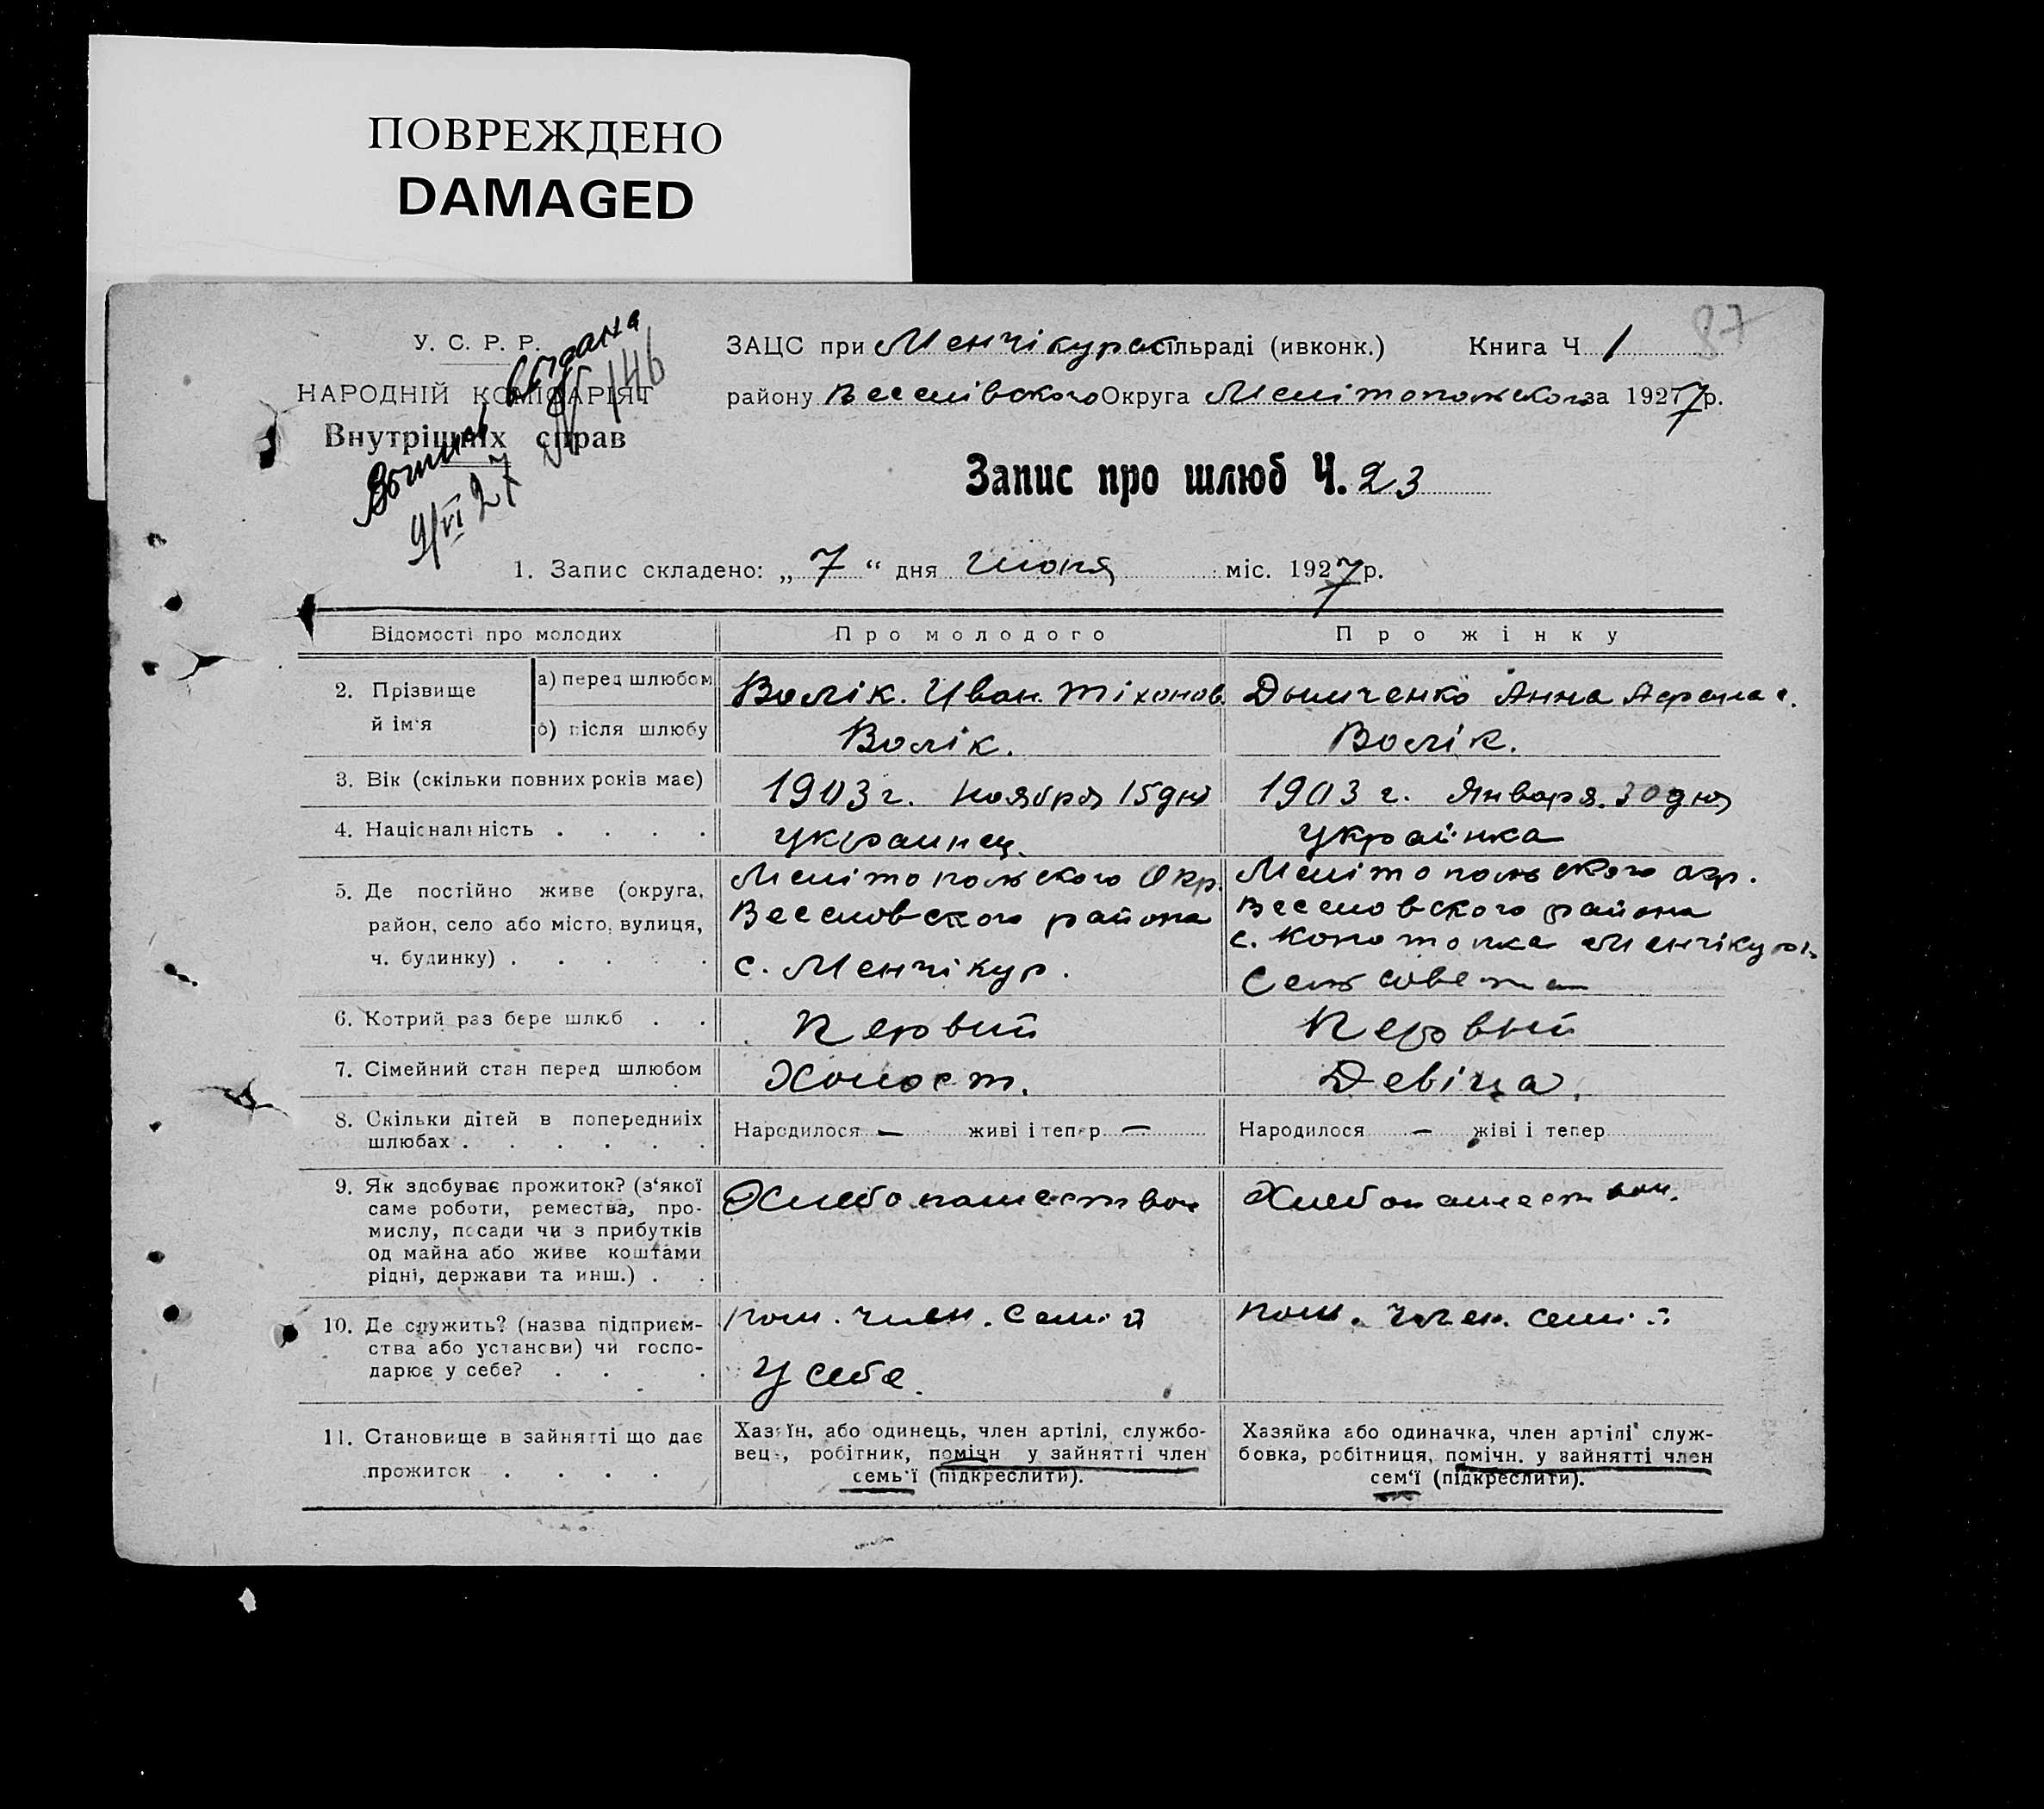 ПОВРЕЖДЕНО
DAMAGED
87
У. С. Р. Р.
НАРОДНІЙ КОМІСАРІЯТ
Внутрішніх справ
видана
№ 146
9/VI 27
ЗАЦС при Менчікурас сільраді (ивконк.) Книга Ч 1
району Веселівского Округа Мелітопольского за 1927 7 р.
Запис про шлюб Ч. 23
1. Запис складено: „ 7 “ дня июня міс. 1927 7 р.
Відомості про молодих Про молодого Про жінку
2. Прізвище й ім‘я
а) перед шлюбом Волік. Иван. Тіхонов. Дымченко Анна Афанас.
б) після шлюбу Волік. Волік.
3. Вік (скільки повних років має) 1903 г. Ноября 15 дня 1903 г. Января. 30 дня
4. Національність . . . . украинец. украінка
5. Де постійно живе (округа,
район, село або місто, вулиця,
ч. будинку) . . . . .
Мелітопольского Окр.
Веселовского района
с. Менчікур.
Мелітопольского окр.
Веселовского района
с. Конотопка Менчікур.
Сельсовета
6. Котрий раз бере шлюб . . Первий Первий
7. Сімейний стан перед шлюбом Холост. Девіца.
8. Скільки дітей в попередниіх
шлюбах . . . . . .
Народилося — живі і тепер —
Народилося — жіві і тепер
9. Як здобуває прожиток? (з‘якої
саме роботи, ремества, про-
мислу, посади чи з прибутків
од майна або живе коштами
рідні, держави та инш.) . .
Хлебопашеством
Хлебопашеством.
10. Де служить? (назва підприєм-
ства або установи) чи госпо-
дарює у себе? . . .
пом. член. семій
У себе.
пом. член. семій
11. Становище в зайнятті що дає
прожиток . . . .
Хазяїн, або одинець, член артілі, службо-
вець, робітник, помічн у зайнятті член
семь‘ї (підкреслити).
Хазяйка або одиначка, член артілі служ-
бовка, робітниця, помічн. у зайнятті член
сем‘ї (підкреслити).